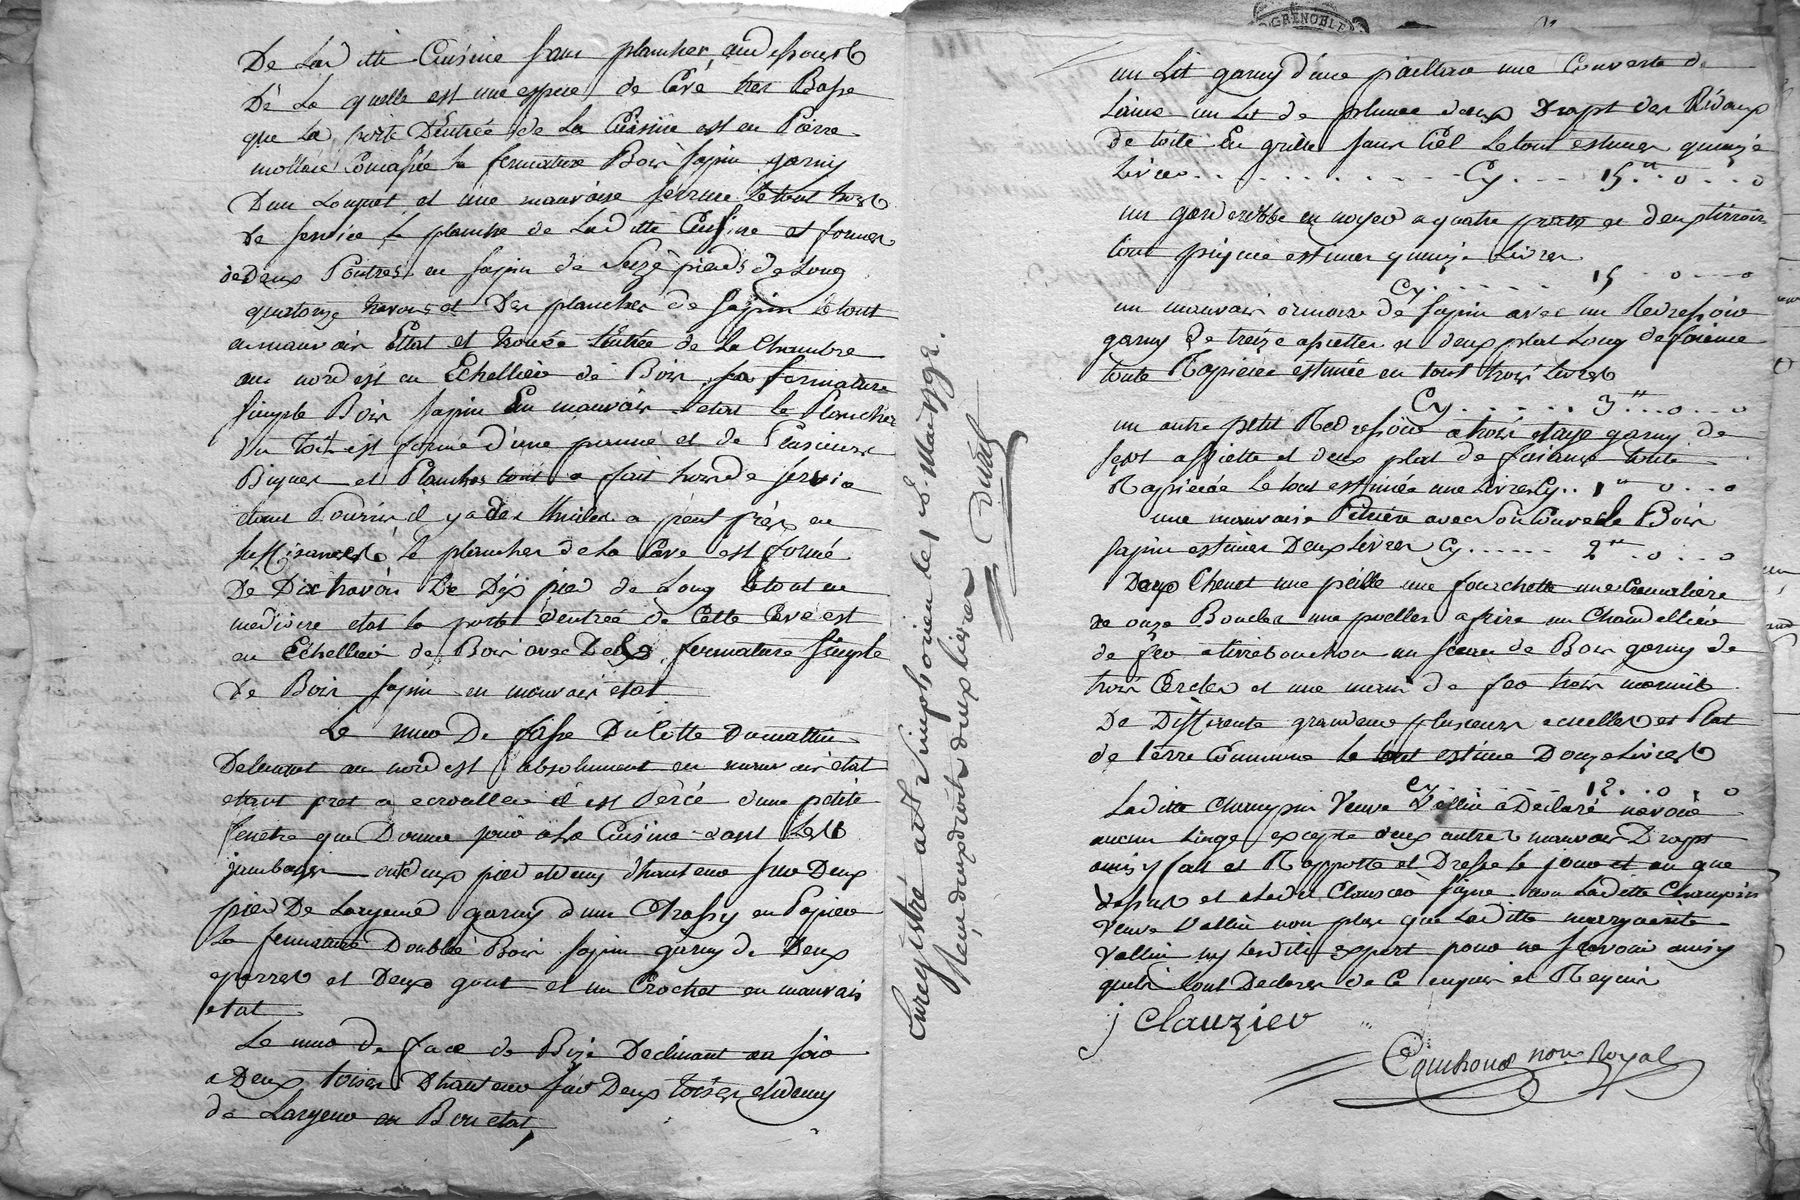 De Laditte Cuisine sans plancher, audessous
De La quelle est une espece de Cave tres Basse
que La porte D'Entrée de La Cuisine est en Pierre
mollace la fermature Bois sapin garny
D'un Loquet et une mauvaise serrure Le tout hors
de service Le planche de Laditte Cuisine est former
de deux Poutres en sapin de Seize pieds de Long
quatorze travons et Des planches de Sapin Le tout
en mauvais Ettat et L'Entrée de La Chambre
au nord est en Echellier de Bois sa fermature
simple Bois sapin En mauvais etat le Plancher
Du Toit est formé d'une panne et de Plusieurs
et Planches tout a fait hors de service
etant Pourris il y a des thuiles a peut près en
suffisance Le plancher de La Cave est formé
De Dix travon De Dix pied de Long Le tout en
mediocre etat la porte d'entrée de Cette Cave est
en Echellier de Bois avec fermature simple
De Bois sapin en mauvais etat
Le mur De fasse Du Cotte Du mattin
Delinant au nord est absolument en mauvais etat
etant pret a ecrouller il est Percé d'une petite
fenetre que Donne jour a La Cuisine dont Les
jambages ont deux pied et demy d'hauteur sur Deux
pied De Largeur garny d'un Chassy en Papier
La fermature Doublée Bois sapin garny de Deux
eparres et Deux gont et un Crochet en mauvais
etat
Le mur de face de Bize Declinant au soir
a Deux toises D'hauteur sur Deux toises et demy
de Largeur en Bon etat
Enregistré a St Simphorien le 1792.
Reçu deux livres
un Lit garny d'une paillasse une Couverte de
Laine un Lit de plume deux Drapt des Ridaux
de toile En grille sans Ciel Le tout estimes quinze
Livres Cy 15ᵗᵗ 0 0
un garderobbe en noyer a quatre portes et deux tirroir
tout estimer quinze Livres
Cy 15 0 0
un mauvais armoire de sapin avec un Redressoir
garny De treize assiettes et deux plat Long de faience
toute Rapiecée estimée en tout trois Livres
Cy 3ᵗᵗ 0 0
un autre petit Redressoir a trois etage garny de
sept assiette et deux plat de faience toute
Rapiecée Le tout estimée une Livres Cy 1ᵗᵗ 0 0
une mauvaise Petriere avec Son Couvercle Bois
sapin estimer Deux Livres Cy 2ᵗᵗ 0 0
Deux Chenet une pelle une fourchette une Cremaliere
de onze Boucles une poelles a frire un Chandellier
de fer a tirrebouchon un sceau de Bois garny de
trois Cercles et une de fer trois marmite
De Differente grandeur plusieurs ecuelles et Plat
de Terre Commune Le tout estime Douze Livres
Cy 12 0 0
Laditte Champin Veuve Vallin a Declaré navoir
aucun Linge excepte deux autres mauvais Draps
ainsy fait et Rapporté et Dresse le jour et an que
dessus et Ledit Clauzer signe non Laditte Champin
Veuve Vallin non plus que Laditte marguerite
Vallin ny Lesdits expert pour ne scavoir ainsy
quils Lont Declarer de Ce enquis et Requis
j Clauzier
non Royal
GRENOBLE